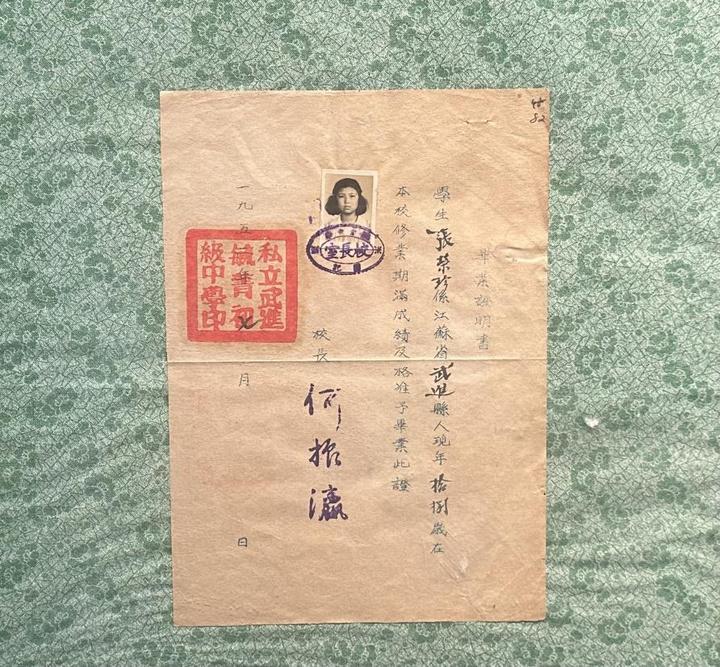 畢業證明書
學生張榮珍係江蘇省武進縣人現年拾捌歲在
本校修業期滿成績及格准予畢業此證
校長室
校長
何振瀛
一九五 年 七 月 日
私立武進
毓菁初
級中學印